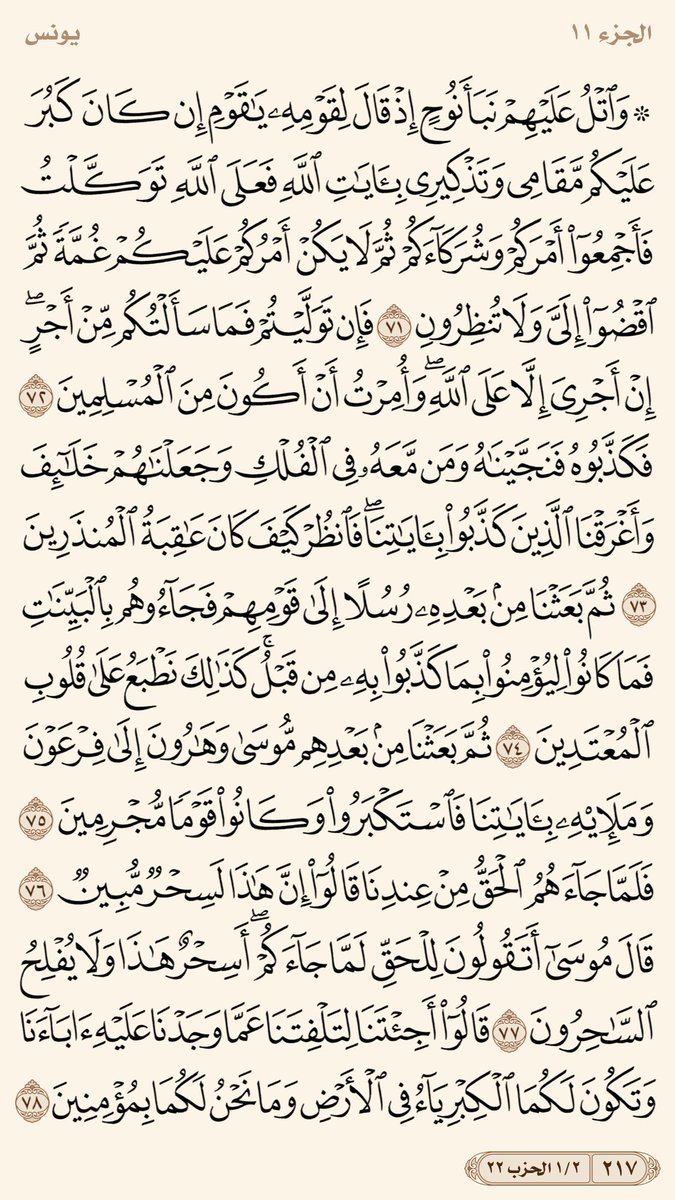 الجزء ١١
يونس
۞ وَٱتۡلُ عَلَيۡهِمۡ نَبَأَ نُوحٍ إِذۡ قَالَ لِقَوۡمِهِۦ يَٰقَوۡمِ إِن كَانَ كَبُرَ
عَلَيۡكُم مَّقَامِي وَتَذۡكِيرِي بِـَٔايَٰتِ ٱللَّهِ فَعَلَى ٱللَّهِ تَوَكَّلۡتُ
فَأَجۡمِعُوٓاْ أَمۡرَكُمۡ وَشُرَكَآءَكُمۡ ثُمَّ لَا يَكُنۡ أَمۡرُكُمۡ عَلَيۡكُمۡ غُمَّةٗ ثُمَّ
ٱقۡضُوٓاْ إِلَيَّ وَلَا تُنظِرُونِ ٧١ فَإِن تَوَلَّيۡتُمۡ فَمَا سَأَلۡتُكُم مِّنۡ أَجۡرٍۖ
إِنۡ أَجۡرِيَ إِلَّا عَلَى ٱللَّهِۖ وَأُمِرۡتُ أَنۡ أَكُونَ مِنَ ٱلۡمُسۡلِمِينَ ٧٢
فَكَذَّبُوهُ فَنَجَّيۡنَٰهُ وَمَن مَّعَهُۥ فِي ٱلۡفُلۡكِ وَجَعَلۡنَٰهُمۡ خَلَٰٓئِفَ
وَأَغۡرَقۡنَا ٱلَّذِينَ كَذَّبُواْ بِـَٔايَٰتِنَاۖ فَٱنظُرۡ كَيۡفَ كَانَ عَٰقِبَةُ ٱلۡمُنذَرِينَ
٧٣ ثُمَّ بَعَثۡنَا مِنۢ بَعۡدِهِۦ رُسُلًا إِلَىٰ قَوۡمِهِمۡ فَجَآءُوهُم بِٱلۡبَيِّنَٰتِ
فَمَا كَانُواْ لِيُؤۡمِنُواْ بِمَا كَذَّبُواْ بِهِۦ مِن قَبۡلُۚ كَذَٰلِكَ نَطۡبَعُ عَلَىٰ قُلُوبِ
ٱلۡمُعۡتَدِينَ ٧٤ ثُمَّ بَعَثۡنَا مِنۢ بَعۡدِهِم مُّوسَىٰ وَهَٰرُونَ إِلَىٰ فِرۡعَوۡنَ
وَمَلَإِيْهِۦ بِـَٔايَٰتِنَا فَٱسۡتَكۡبَرُواْ وَكَانُواْ قَوۡمٗا مُّجۡرِمِينَ ٧٥
فَلَمَّا جَآءَهُمُ ٱلۡحَقُّ مِنۡ عِندِنَا قَالُوٓاْ إِنَّ هَٰذَا لَسِحۡرٞ مُّبِينٞ ٧٦
قَالَ مُوسَىٰٓ أَتَقُولُونَ لِلۡحَقِّ لَمَّا جَآءَكُمۡۖ أَسِحۡرٌ هَٰذَا وَلَا يُفۡلِحُ
ٱلسَّٰحِرُونَ ٧٧ قَالُوٓاْ أَجِئۡتَنَا لِتَلۡفِتَنَا عَمَّا وَجَدۡنَا عَلَيۡهِ ءَابَآءَنَا
وَتَكُونَ لَكُمَا ٱلۡكِبۡرِيَآءُ فِي ٱلۡأَرۡضِ وَمَا نَحۡنُ لَكُمَا بِمُؤۡمِنِينَ ٧٨
٢١٧ ١/٢ الحزب ٢٢